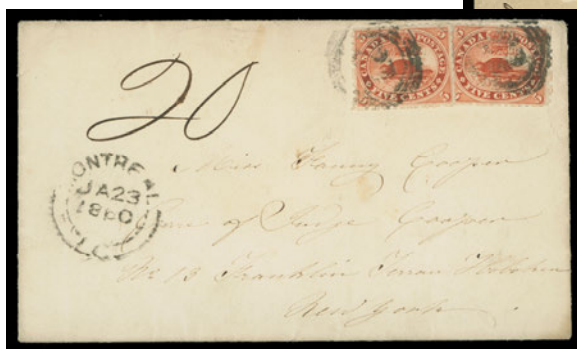 CANADA POSTAGE FIVE CENTS
CANADA POSTAGE FIVE CENTS
20
MONTREAL
JA 23
1860
Miss Fanny Cooper
Care of Judge Cooper
No 13 Franklin Terrace Hoboken
New York